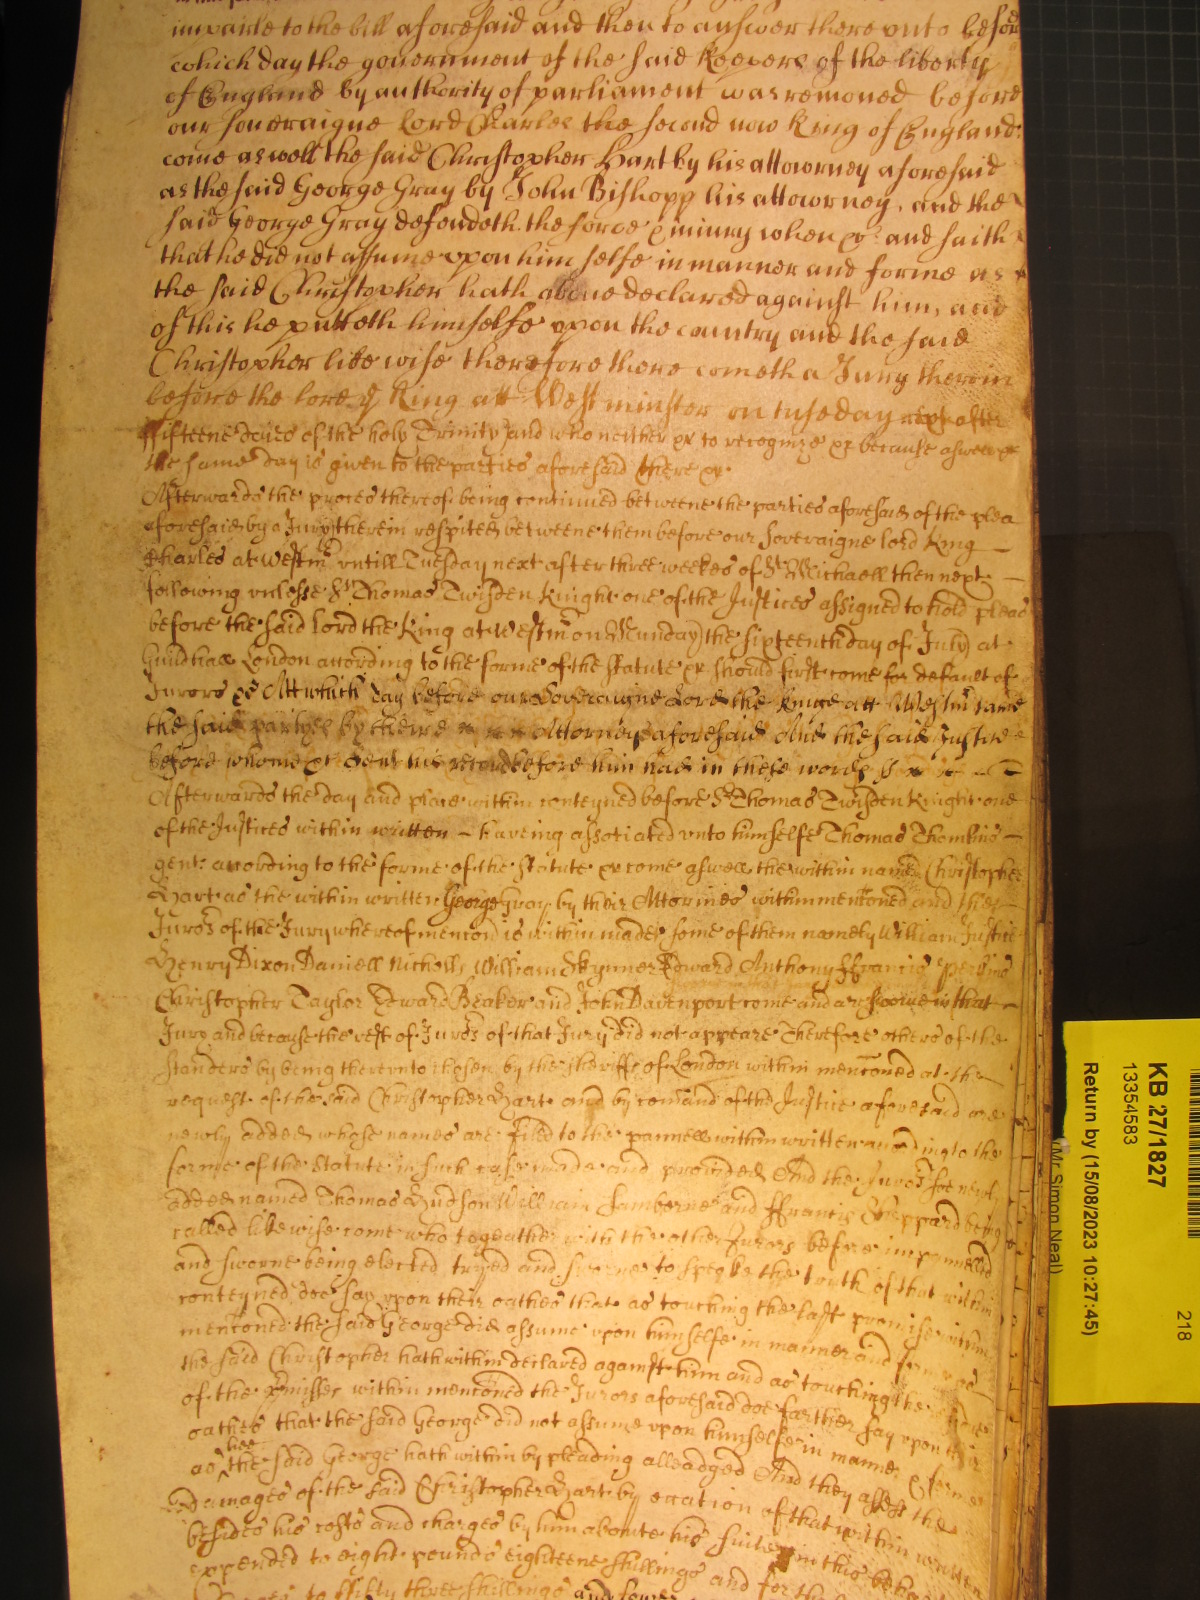 imparle to the bill aforesaid and then to answer there unto before
which day the government of the said Keepers of the liberty
of England by authority of parliament was removed before
our soveraigne lord Charles the second now King of England
come as well the said Christopher Hart by his attowrney aforesaid
as the said George Gray by John Bishopp his attowrney, and the
said George Gray defendeth the force & iniury when &c: and saith
that he did not assume upon him selfe in manner and forme as
the said Christopher hath above declared against him, and
of this he putteth himselfe upon the country and the said
Christopher likewise therefore there cometh a Jury therein
before the lord ye King att Westminster on tuseday next after
ffifteene daies of the holy Trinity and who neither &c to recognize &c because aswell &c
the same day is given to the parties aforesaid there &c.
Afterwards the proces thereof being continued betweene the parties aforesaid of the plea
aforesaid by a Jury therein respited betweene them before our Soveraigne lord King
Charles at Westmr untill Tuesday next after three weekes of St Michaell then next
following unlesse Sr Thomas Twisden Knight one of the Justices assigned to hold pleas
before the said lord the King at Westmr on Munday the sixteenth day of July at
Guildhall London according to the forme of the Statute &c should first come for default of
Jurors &c Att which day before our Soveraigne Lord the Kinge att Westmr came
the said partyes by theire Attorneys aforesaid And the said Justice
before whome &c sent his record before him had in these words
Afterwards the day and place within conteyned before Sr Thomas Twisden Knight one
of the Justices within written haveing assotiated unto himselfe Thomas Thomkins
gent: according to the forme of the Statute &c come aswell the within named Christopher
Hart as the within written George Gray by their Attornies within mentioned and the
Jurors of the Jury whereof mencon is within made some of them namely William Justice
Henry Dixon Daniell Nicholls William Skynner Edward Anthony ffrancis Perkins
Christopher Taylor Edward Beaker and John Davenport come and are sworne in that
Jury and because the rest of Jurors of that Jury did not appeare Therefore others of the
standers by being thereunto chosen by the Sheriffs of London within mencõned at the
request of the said Christopher Hart and by comand of the Justice aforesaid are
newly added whose names are filed to the pannell within written according to the
forme of the Statute in such case made and provided And the Jurors soe newly
added named Thomas Hudson William and ffrancis Sheppard being
called likewise come who togeather with the other Jurors before impannelled
and sworne being elected tryed and sworne to speake the truth of that within
conteyned doe say upon their oathes that as touching the last promise within
mencõned the said George did assume upon himselfe in manner and forme as
the said Christopher hath within declared against him and as touching the
of the pmisses within mencõned the Jurors aforesaid doe farther say upon their
oathes that the said George did not assume upon himselfe in manner & forme
as hee the said George hath within by pleading alleadged And they assess the
Damages of the said Christopher Hart by occation of that within written
besides his costs and charges by him aboute his suite in this behalfe
expended to eight pounds eighteene shillings and for the
to fifty three shillings and
KB 27/1827
13354583
Return by (15/08/2023 10:27:45)
(Mr Simon Neal)
218